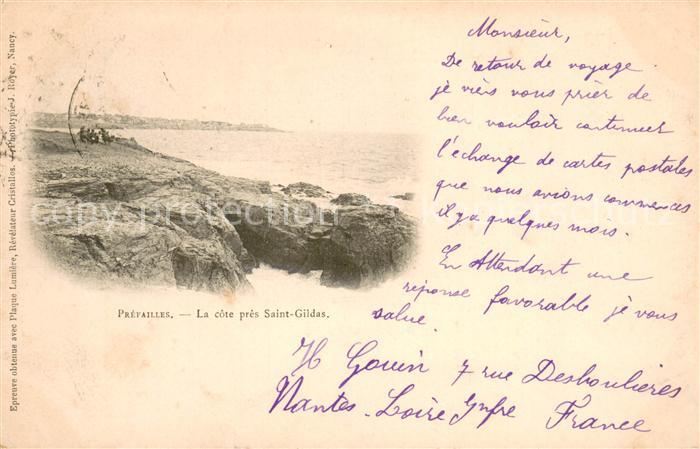 Monsieur,
De retour de voyage
je viens vous prier de
bien vouloir continuer
l'échange de cartes postales
que nous avions commencés
il y a quelques mois.
En Attendant une
réponse favorable je vous
salue.
H Gouin 7 rue Deshoulières
Nantes. Loire Infre France
PRÉFAILLES. — La côte près Saint-Gildas.
Epreuve obtenue avec Plaque Lumière, Révélateur Cristallos. — Phototypie J. Royer, Nancy.